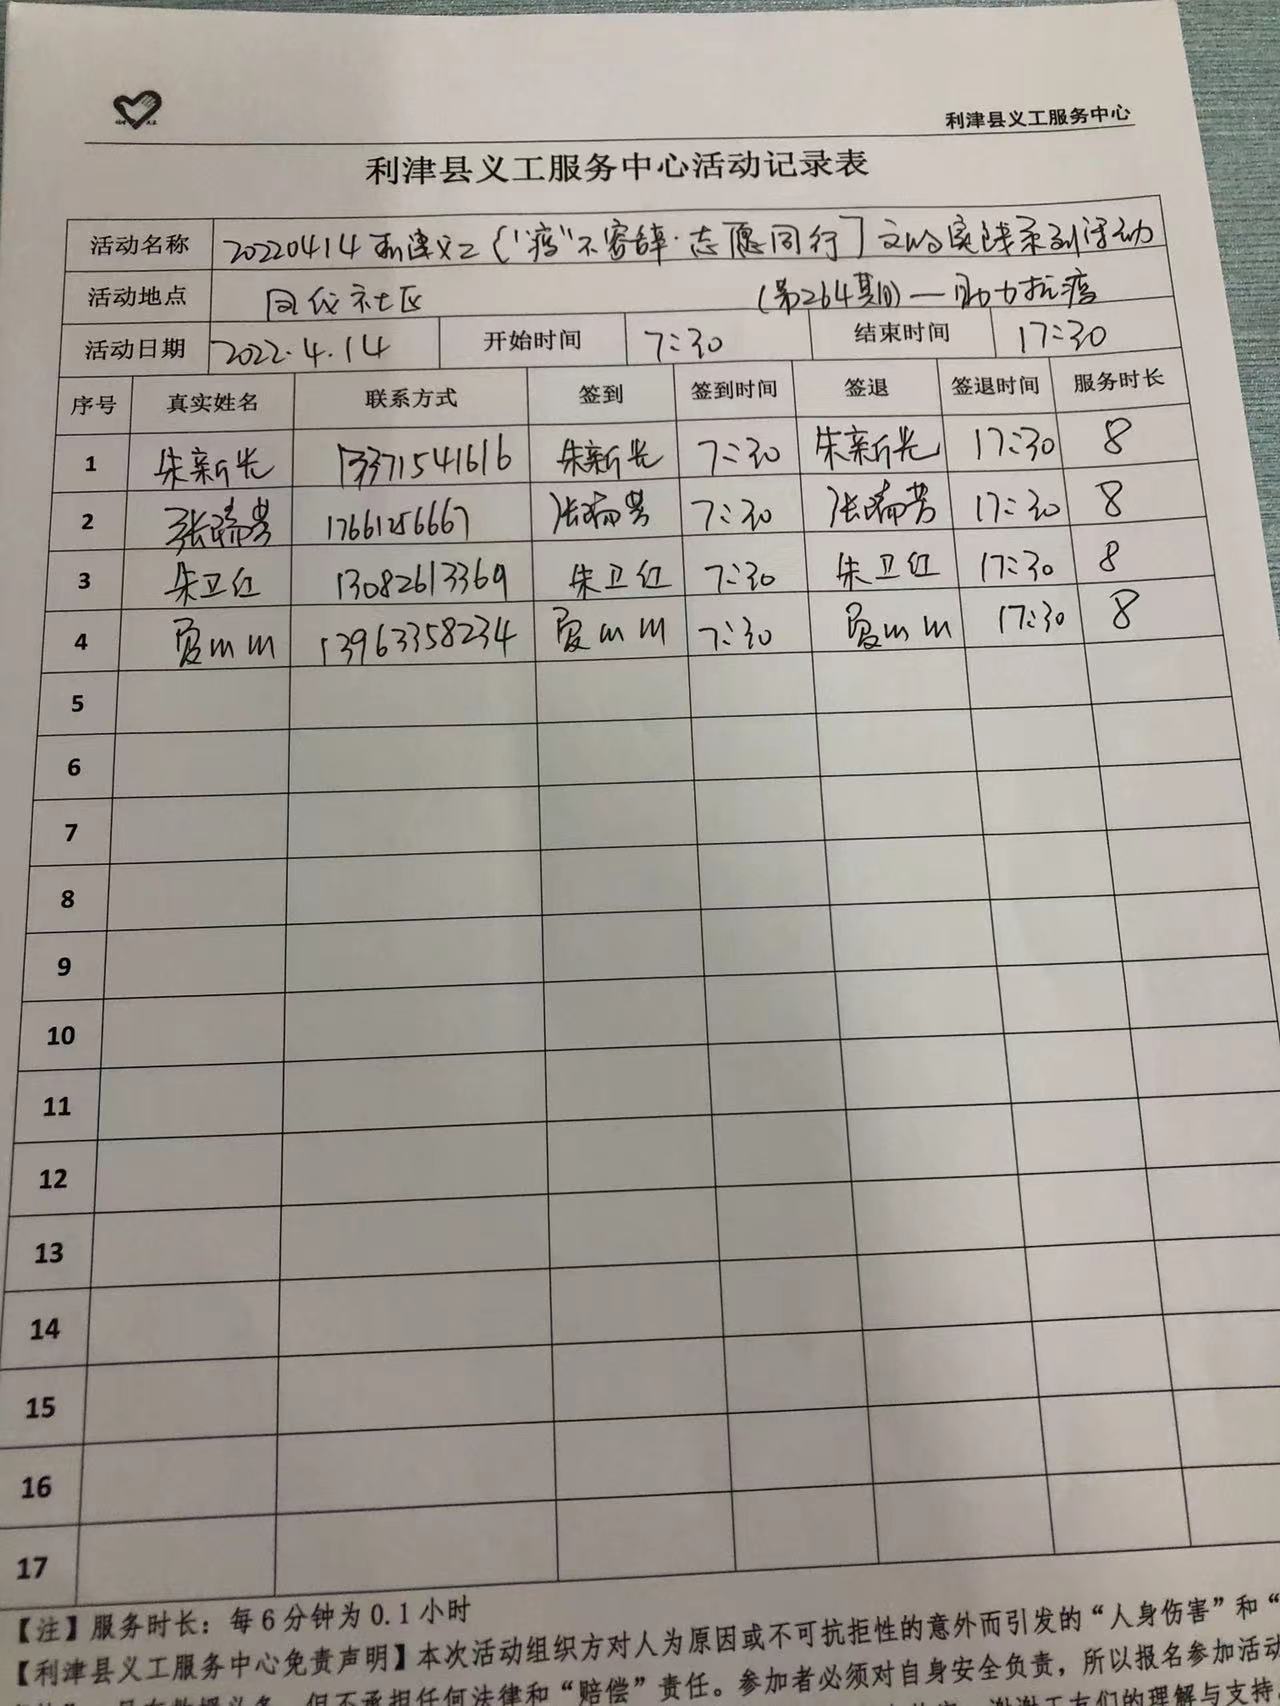 利津县义工服务中心
利津县义工服务中心活动记录表
活动名称 20220414利津义工〔“疫”不容辞·志愿同行〕文明实践系列活动
活动地点 社区 (第264期)—助力抗疫
活动日期 2022.4.14 开始时间 7:30 结束时间 17:30
序号 真实姓名 联系方式 签到 签到时间 签退 签退时间 服务时长
1 朱新光 13371541616 朱新光 7:30 朱新光 17:30 8
2 张瑞芳 17661256667 张瑞芳 7:30 张瑞芳 17:30 8
3 朱卫红 13082613369 朱卫红 7:30 朱卫红 17:30 8
4 13963358234 7:30 17:30 8
5
6
7
8
9
10
11
12
13
14
15
16
17
【注】服务时长：每6分钟为0.1小时
【利津县义工服务中心免责声明】本次活动组织方对人为原因或不可抗拒性的意外而引发的“人身伤害”和“
但不承担任何法律和“赔偿”责任。参加者必须对自身安全负责，所以报名参加活动
谢谢义工们的理解与支持